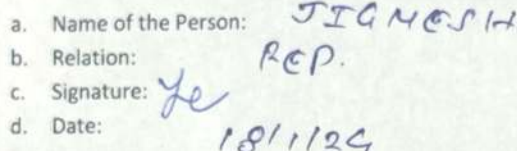 a. Name of the Person: JIGMESH
b. Relation: REP.
c. Signature:
d. Date: 18/1/24